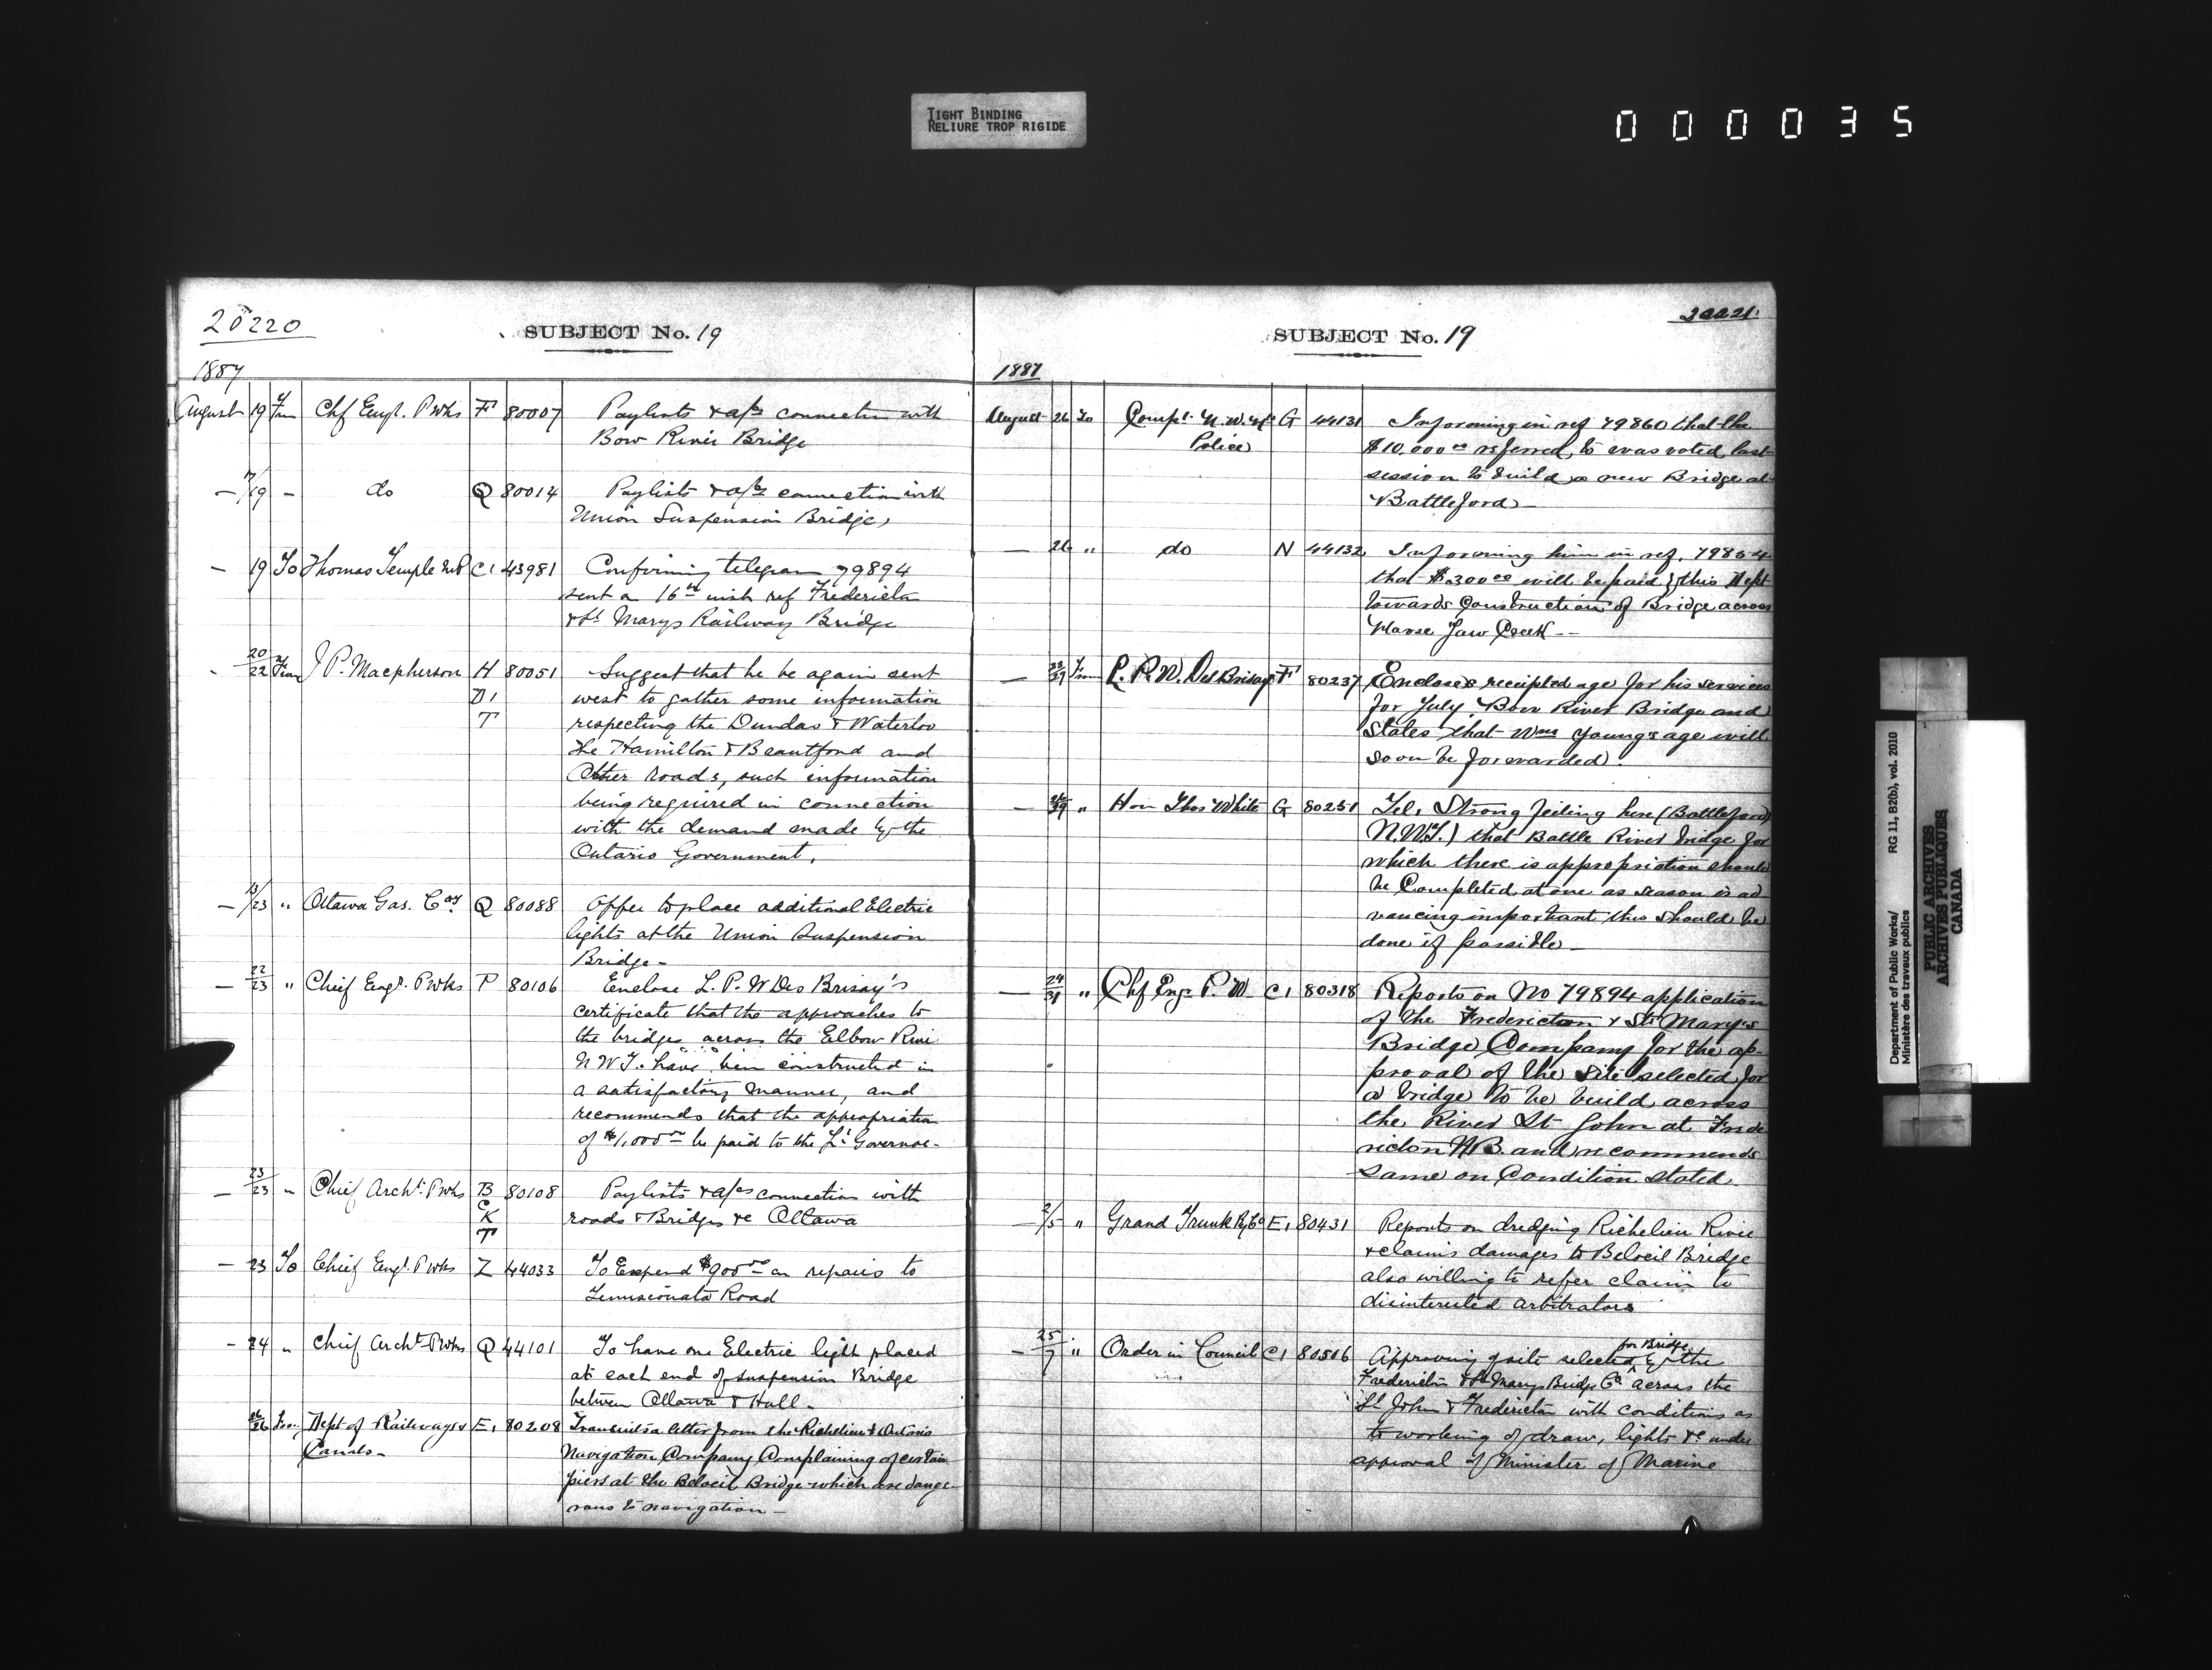 TIGHT BINDING
RELIURE TROP RIGIDE
000035
20220
SUBJECT No. 19
1887
August 19 From Chf Engr. P Wks F 80007 Paylists & a/cs connection with
Bow River Bridge
— 17/19 - do Q 80014 Paylists & a/cs connection with
Union Suspension Bridge,
- 19 To Thomas Temple MP C1 43981 Confirming telegram 79894
sent on 16th inst ref Fredericton
& St Marys Railway Bridge
- 20/22 From J P. Macpherson H 80051 Suggest that he be again sent
D1 west to gather some information
T respecting the Dundas & Waterloo
the Hamilton & Brantford and
Other roads, such information
being required in connection
with the demand made by the
Ontario Government.
— 23 " Ottawa Gas. Coy. Q 80088 Offer to place additional Electric
lights at the Union Suspension
Bridge -
— 22/23 " Chief Engr. P Wks P 80106 Enclose L. P. W Des Brisay's
certificate that the approaches to
the bridges across the Elbow River
N W T. have been constructed in
a satisfactory manner, and
recommends that the appropriation
of $1,000 00 be paid to the Lt Governor -
— 23/23 " Chief Archt. P Wks B 80108 Paylists & a/cs connection with
C
K roads & Bridges &c Ottawa
T
— 23 To Chief Engr. P Wks Z 44033 To Expend $900 00 on repairs to
Temiscouata Road
- 24 " Chief Archt. P Wks Q 44101 To have one Electric light placed
at each end of suspension Bridge
between Ottawa & Hull -
26 From Dept of Railways & E1 80208 Transmits a letter from the Richelieu & Ontario
Canals - Navigation Company Complaining of certain
piers at the Beloeil Bridge which are dange-
rous to navigation -
20221
SUBJECT No. 19
1887
August 26 To Compt. N. W. M. G 44131 Informing in ref 79860 that the
Police $10,000 00 referred to was voted last
session to build a new Bridge at
Battleford —
— 26 " do N 44132 Informing him in ref. 79854
that $300 00 will be paid by this Dept
towards Construction of Bridge across
Moose Jaw Creek --
— 29 From L. P. W. Des Brisay F 80237 Encloses receipted age for his services
for July Bow River Bridge and
States that Wm Young's age will
soon be forwarded.
— 29 " Hon Thos White G 80251 Tel. Strong feeling here (Battleford
N.W.T.) that Battle River bridge for
which there is appropriation should
be Completed at one as season is ad
vancing important this should be
done if possible —
— 24/31 " Chf Engr P. W. C1 80318 Reports on No 79894 application
of the Fredericton & St. Mary's
Bridge Company for the ap-
proval of the site selected for
a bridge to be build across
the River St John at Frede
ricton N.B. and recommends
same on Condition stated.
— 2/5 " Grand Trunk Ry Co E1 80431 Reports on dredging Richelieu River
& claims damages to Beloeil Bridge
also willing to refer claim to
disinterested arbitrators
- 25/7 " Order in Council C1 80516 Approving of site selected for Bridge by the
Fredericton & St Marys Bridge Co across the
St John & Fredericton with conditions as
to working of draw, lights &c under
approval of Minister of Marine
Department of Public Works/ RG 11, B2(b), vol. 2010
Ministère des travaux publics
PUBLIC ARCHIVES
ARCHIVES PUBLIQUES
CANADA